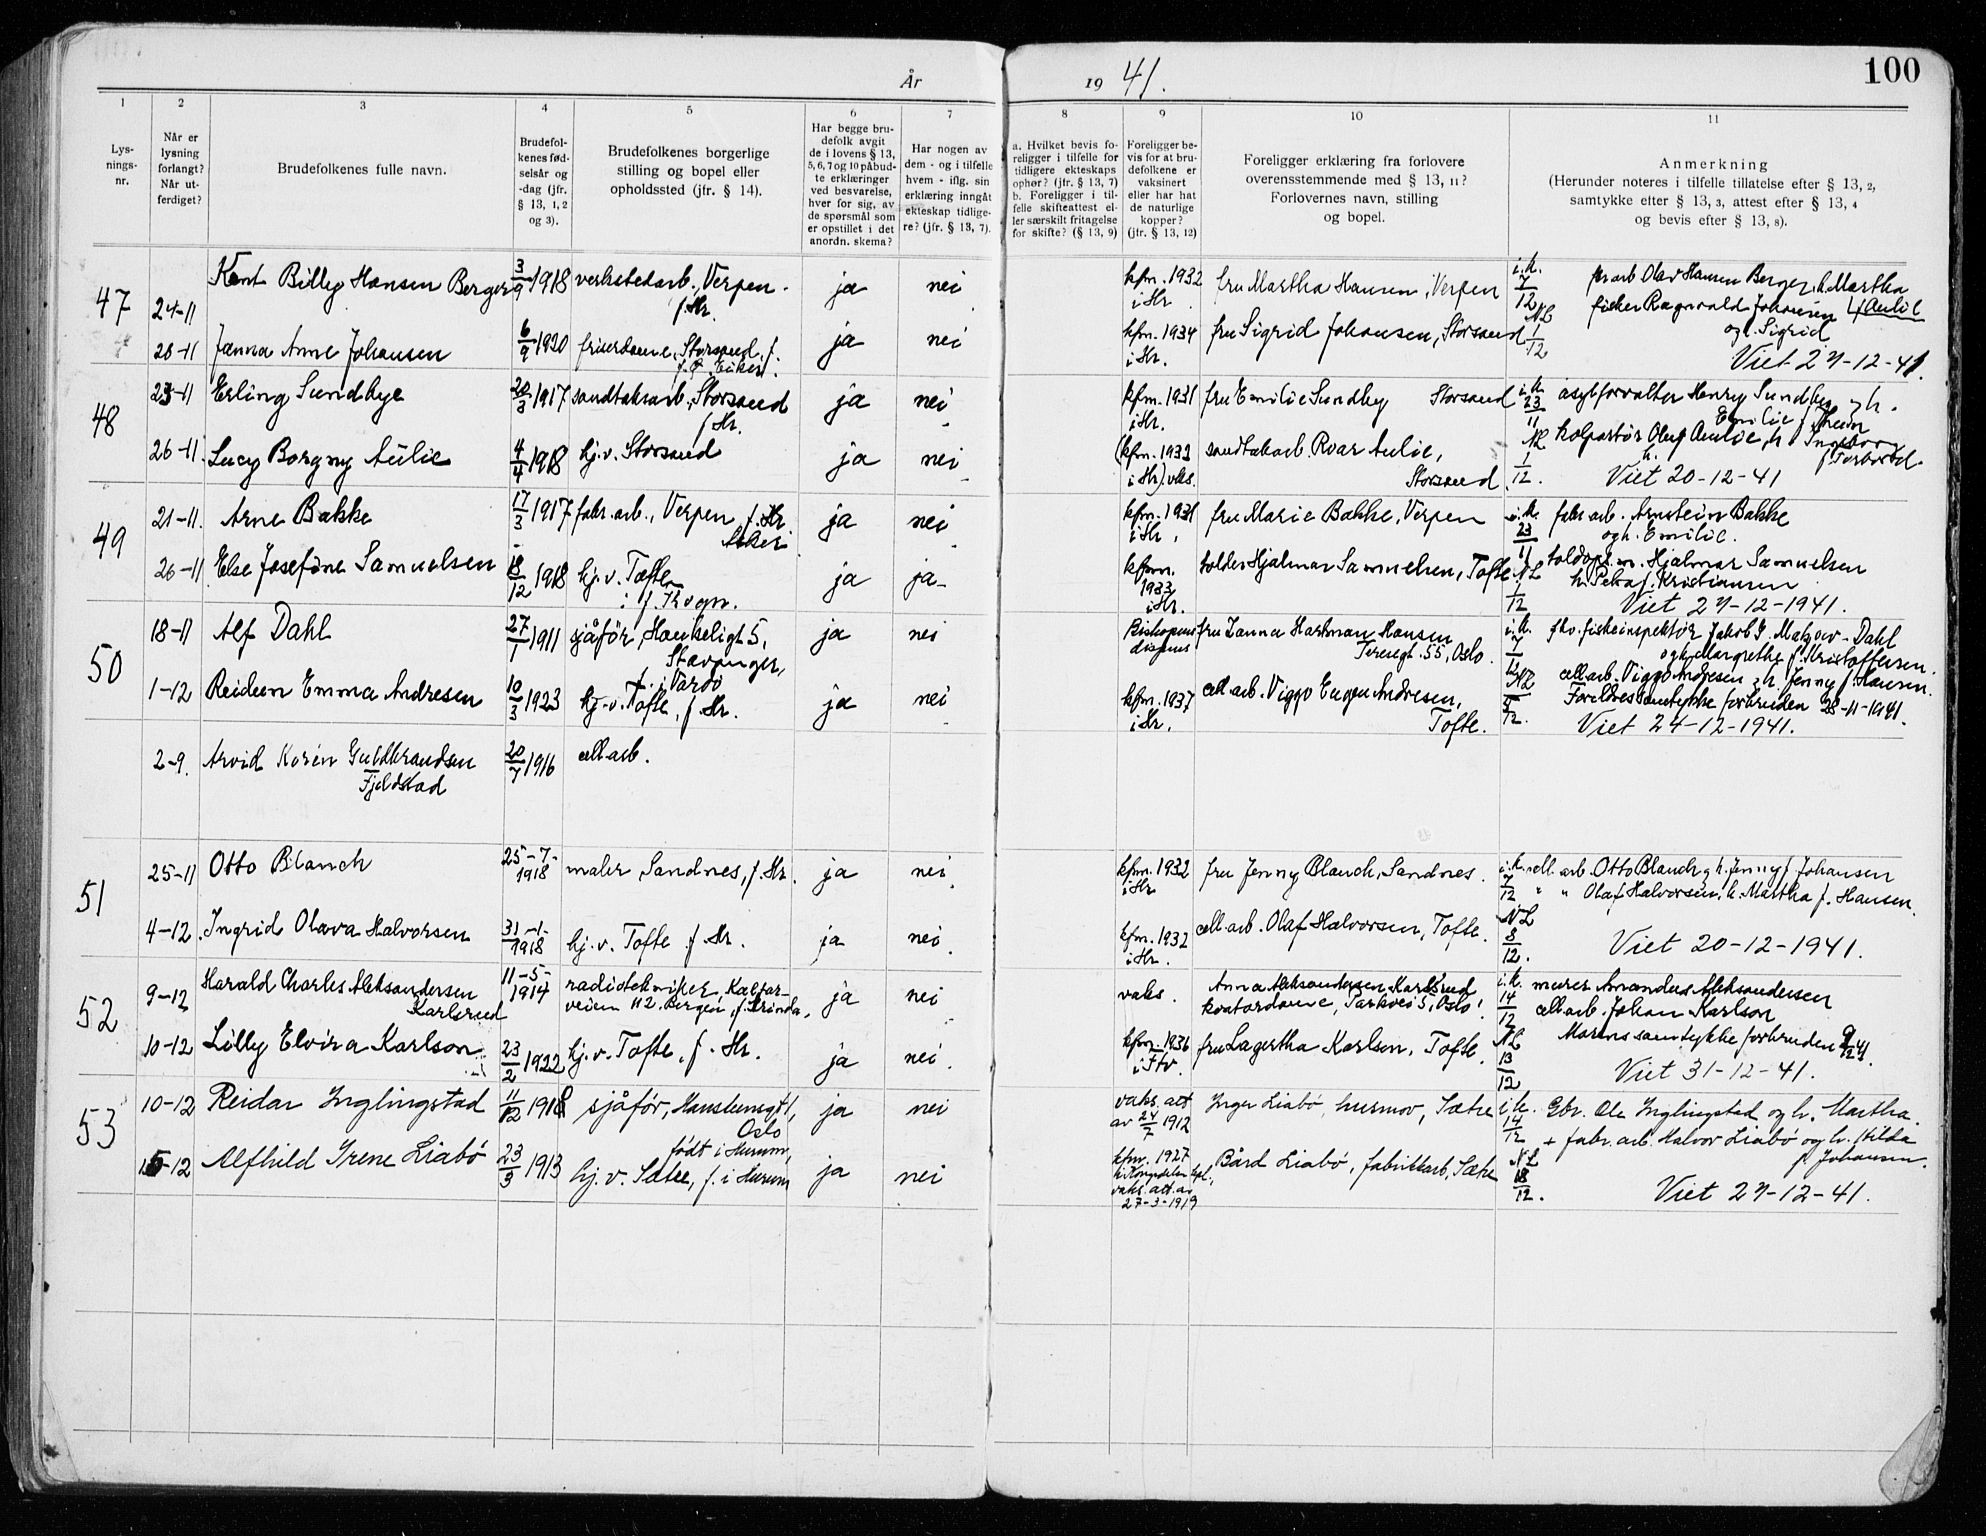 År 1941.
100
1 2 3 4 5 6 7 8 9 10 11
Lysningsnr.
Når er lysning forlangt? Når utferdiget?
Brudefolkenes fulle navn.
Brudefolkenes fødselsår og -dag (jfr. § 13, 1, 2 og 3).
Brudefolkenes borgerlige stilling og bopel eller opholdssted (jfr. § 14).
Har begge brudefolk avgit de i lovens § 13, 5, 6, 7 og 10 påbudte erklæringer ved besvarelse, hver for sig, av de spørsmål som er opstillet i det anordn. skema?
Har nogen av dem - og i tilfelle hvem - iflg. sin erklæring inngåt ekteskap tidligere? (jfr. § 13, 7).
a. Hvilket bevis foreligger i tilfelle for tidligere ekteskaps ophør? (jfr. § 13, 7) b. Foreligger i tilfelle skifteattest eller særskilt fritagelse for skifte? (§ 13, 9)
Foreligger bevis for at brudefolkene er vaksinert eller har hat de naturlige kopper? (jfr. § 13, 12)
Foreligger erklæring fra forlovere overensstemmende med § 13, 11? Forlovernes navn, stilling og bopel.
Anmerkning (Herunder noteres i tilfelle tillatelse efter § 13, 2, samtykke efter § 13, 3, attest efter § 13, 4 og bevis efter § 13, 8).
47
24-11 Kent Billy Hansen Berger 3/9 1918 verkstedarb., Verpen. f. Hr. ja nei kfm. 1932 i Hr. fru Martha Hansen, Verpen i.k. 7/12 Olav Hansen Berger, h. Martha f. Aulie
28-11 Janna Anne Johansen 6/9 1920 frisördame, Storsand, f. f. Ø. Eiker. ja nei kfm. 1934 i Hr. fru Sigrid Johansen, Storsand NL 1/12 fisker Ragnvald Johansen og h. Sigrid
Viet 27-12-41.
48
23-11 Erling Sundbye 20/3 1917 sandtakarb., Storsand f. Hr. ja nei kfm. 1931 i Hr. fru Emilie Sundby Storsand i.k. 23/11 asylforvalter Henry Sundby og h. Emilie f. Them
26-11. Lucy Borgny Aulie 4/4 1918 hj.v. Storsand ja nei (kfm. 1932 i Hr.) vaks. sandtakarb. Roar Aulie, Storsand. NL 1/12. kolportör Oluf Aulie, h. Ingeborg f. Torbord.
Viet 20-12-41
49
21-11. Arne Bakke 17/3 1917 fabr. arb., Verpen, f. Hr Asker ja nei kfm. 1931 i Hr. fru Marie Bakke, Verpen i.k. 23/11 fabr. arb. Arnstein Bakke og h. Emilie.
26-11 Else Josefine Samuelsen 18/12 1918 hj.v. Tofte f. Trogn. ja ja kfm. 1933 i Hr. Hjalmar Samuelsen, Tofte NL 1/12 Hjalmar Samuelsen h. Petra f. Kristiansen
Viet 27-12-1941.
50
18-11 Alf Dahl 27/1 1911 sjåför, Haukeligt 5, Stavanger, f. i Vardö ja nei Bispens dispens fru Janna Hartman Hansen Teresegt. 55, Oslo. i.k. 7/12 fhv. fiskeinspektör Jakob J. Matzow-Dahl og h. Margrethe f. Kristoffersen.
1-12 Reidun Emma Andresen 10/3 1923 hj.v. Tofte, f. Hr. ja nei kfm. 1937 i Hr. cell. arb. Viggo Eugen Andresen, Tofte. NL 8/12. cell. arb. Viggo Andresen og h. Jenny f. Hansen.
Foreldresamtykke for bruden 28-11-1941.
Viet 24-12-1941.
2-9. Arvid Korén Guldbrandsen Fjeldstad 20/7 1916 cell. arb.
51
25-11 Otto Blanch 25-7-1918 maler, Sandnes, f. Hr. ja nei kfm. 1932 i Hr fru Jenny Blanch, Sandnes. i.k. 7/12 cell. arb. Otto Blanch og h. Jenny f. Johansen
4-12. Ingrid Olava Halvorsen 31-1-1918 hj.v. Tofte f. Hr. ja nei. kfm. 1932 i Hr. cell. arb. Olaf Halvorsen, Tofte. NL 8/12. " " Olaf Halvorsen, h. Martha f. Hansen.
Viet 20-12-1941.
52
9-12 Harald Charles Aleksandersen Karlsrud 11-5-1914 radiotekniker, Kalfarveien 112. Bergen, f. Strinda. ja nei vaks. Anna Aleksandersen Karlsrud kontordame, Parkvei 5, Oslo. i.k. 14/12 murer Amandus Aleksandersen
10-12 Lilly Elvira Karlson 23/2 1922 hj.v. Tofte, f. Hr. ja nei. kfm. 1936 i Hr. fru Lagertha Karlsen, Tofte. NL 13/12 cell. arb. Johan Karlson
Morens samtykke for bruden 9/12 41.
Viet 31-12-41.
53
10-12 Reidar Inglingstad 11/12 1918 sjåför, Hanstensgt 1, Oslo födt i Hurum, ja nei vaks. att av 24/7 1912 Inger Liabö, husmor, Sætre i.k. 14/12 Gbr. Ole Inglingstad og h. Martha.
15-12 Alfhild Irene Liabö 23/3 1913 hj.v. Sætre, f. i Hurum ja nei kfm. 1927 vaks. att. av 27-3-1919 Bård Liabö, fabrikkarb., Sætre NL 18/12. + fabr. arb. Halvor Liabö og h. Hilda f. Johansen.
Viet 27-12-41.